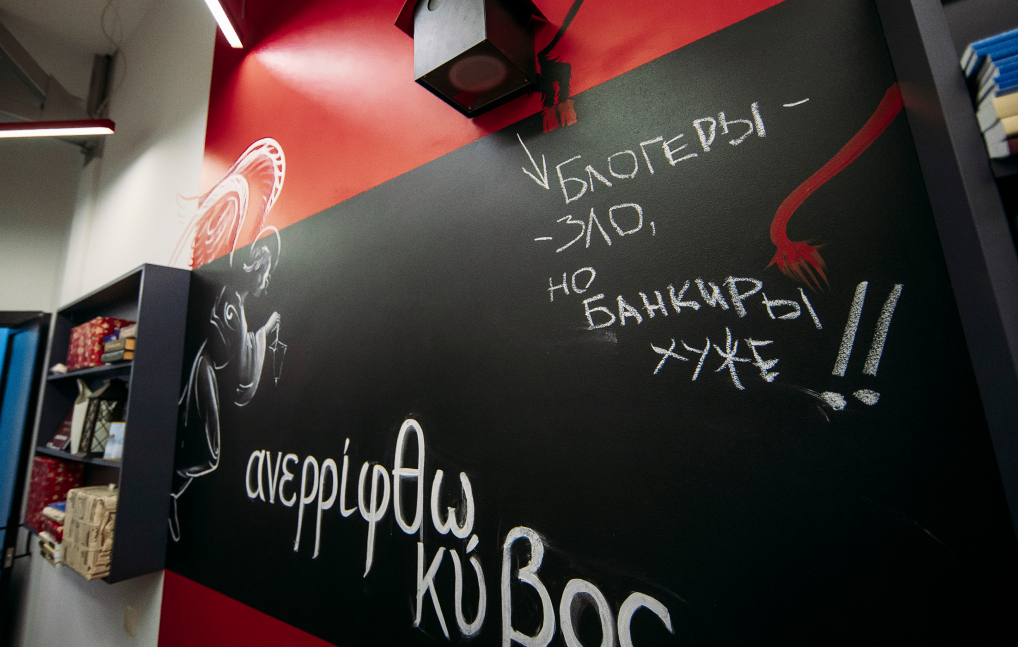 БЛОГЕРЫ -
- ЗЛО,
НО
БАНКИРЫ
ХУЖЕ !!
ανερρίφθω
κύβος